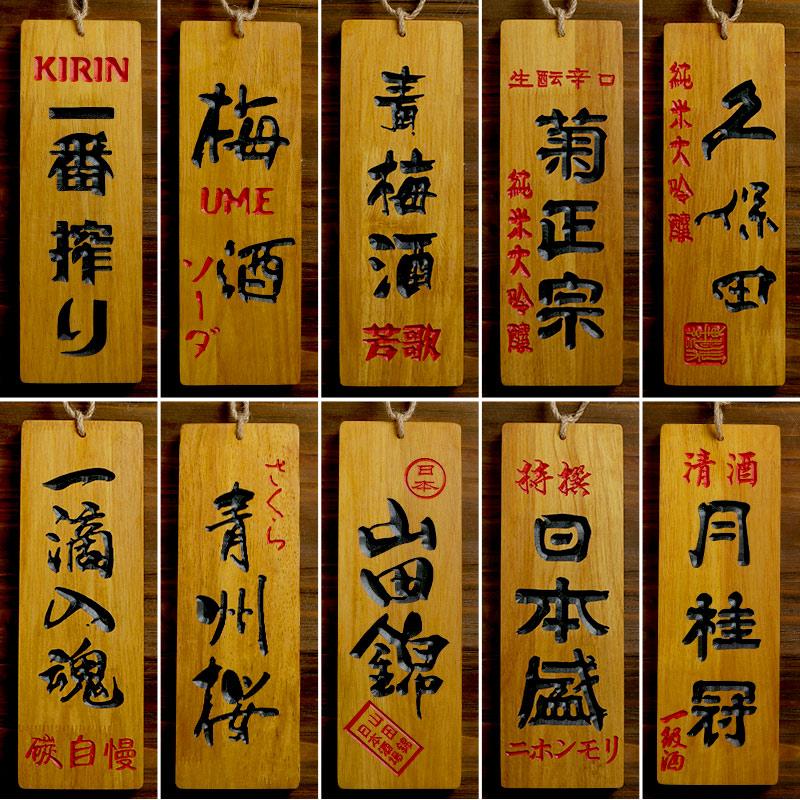 KIRIN
一番搾り
梅酒
UME
ソーダ
青梅酒
若歌
生酛辛口
菊正宗
純米大吟醸
純米大吟醸
久保田
一滴入魂
碳自慢
さくら
青州桜
日本
山田錦
山田錦
日本酒場
特撰
日本盛
ニホンモリ
清酒
月桂冠
一級酒